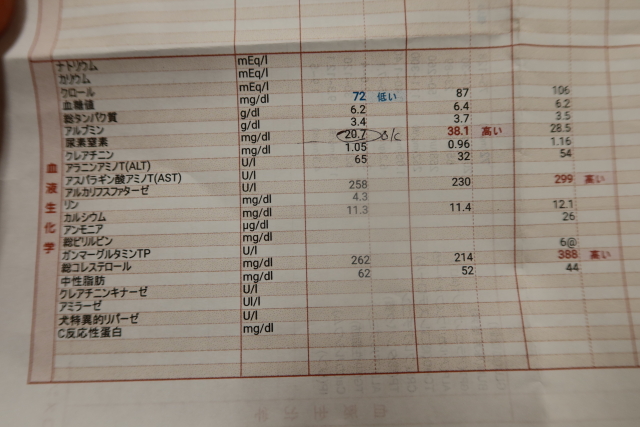 ナトリウム mEq/l
カリウム mEq/l
クロール mEq/l
血糖値 mg/dl 72 低い 87 106
総タンパク質 g/dl 6.2 6.4 6.2
アルブミン g/dl 3.4 3.7 3.5
尿素窒素 mg/dl 20.7 38.1 高い 28.5
クレアチニン mg/dl 1.05 0.96 1.16
アラニンアミノT(ALT) U/l 65 32 54
アスパラギン酸アミノT(AST) U/l
アルカリフスファターゼ U/l 258 230 299 高い
リン mg/dl 4.3
カルシウム mg/dl 11.3 11.4 12.1
アンモニア µg/dl 26
総ビリルビン mg/dl
ガンマーグルタミンTP U/l 6@
総コレステロール mg/dl 262 214 388 高い
中性脂肪 mg/dl 62 52 44
クレアチニンキナーゼ U/l
アミラーゼ U/l
犬特異的リパーゼ U/l
C反応性蛋白 mg/dl
血液生化学